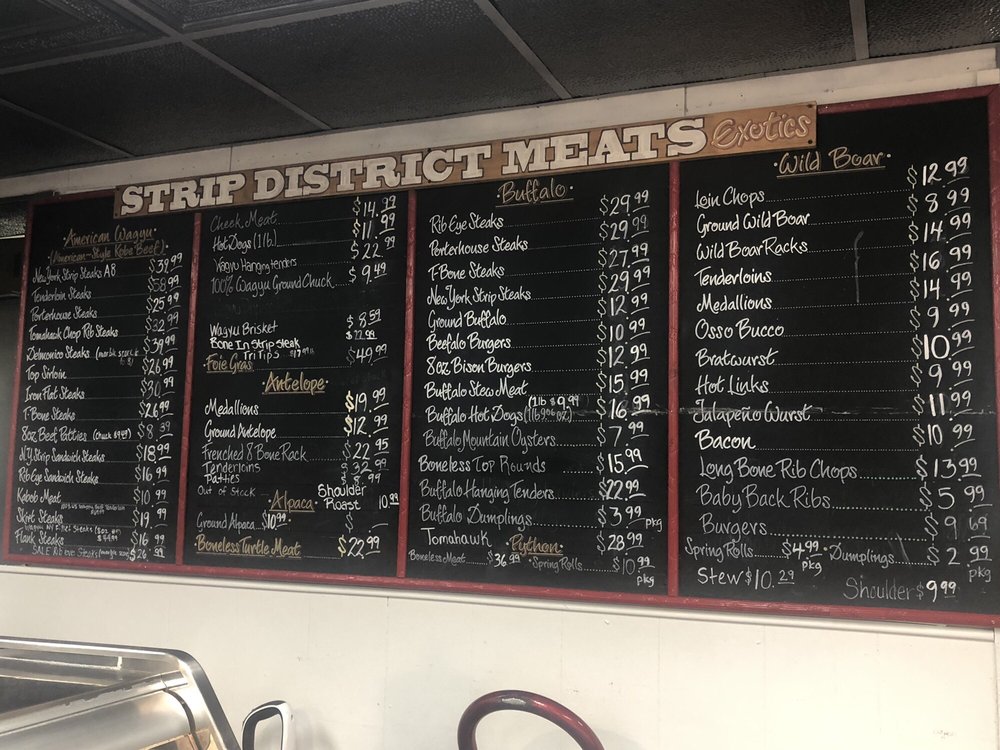 STRIP DISTRICT MEATS Exotics
American Wagyu
(American-Style Kobe Beef)
New York Strip Steaks A8 $38.99
Tenderloin Steaks $58.99
Porterhouse Steaks $25.99
Tomahawk Chop Rib Steaks $32.99
Delmonico Steaks $39.99
Top Sirloin $26.99
Iron Flat Steaks $30.99
T-Bone Steaks $26.99
8oz Beef Patties $8.39
N.Y. Strip Sandwich Steaks $18.99
Rib Eye Sandwich Steaks $16.99
Kabob Meat $10.99
Skirt Steaks $19.99
Flank Steaks $16.99
SALE Rib eye Steaks $26.99
Cheek Meat $14.99
Hot Dogs (1lb) $11.99
Wagyu Hanging tenders $22.99
100% Wagyu Ground Chuck $9.49
Wagyu Brisket $8.59
Bone In Strip steak
Tri Tips $17.99 lb
Foie Gras $49.99
Antelope
Medallions $19.99
Ground Antelope $12.99
Frenched 8 Bone Rack $22.95
Tenderloins $32.99
Patties $8.99
Out of Stock
Alpaca Shoulder Roast 10.99
Ground Alpaca $10.99
Boneless Turtle Meat $22.99
Buffalo
Rib Eye Steaks $29.99
Porterhouse Steaks $29.99
T-Bone Steaks $27.99
New York Strip Steaks $29.99
Ground Buffalo $12.99
Beefalo Burgers $10.99
8oz Bison Burgers $12.99
Buffalo Stew Meat $15.99
Buffalo Hot Dogs (1lb $9.99) $16.99
Buffalo Mountain Oysters $7.99
Boneless Top Rounds $15.99
Buffalo Hanging Tenders $22.99
Buffalo Dumplings $3.99 pkg
Tomahawk $28.99
Python
Boneless Meat $36.99 · Spring Rolls $10.99 pkg
Wild Boar
Loin Chops $12.99
Ground Wild Boar $8.99
Wild Boar Racks $14.99
Tenderloins $16.99
Medallions $14.99
Osso Bucco $9.99
Bratwurst $10.99
Hot Links $9.99
Jalapeño Wurst $11.99
Bacon $10.99
Long Bone Rib Chops $13.99
Baby Back Ribs $5.99
Burgers $9.69
Spring Rolls $4.99 pkg · Dumplings $2.99 pkg
Stew $10.29
Shoulder $9.99